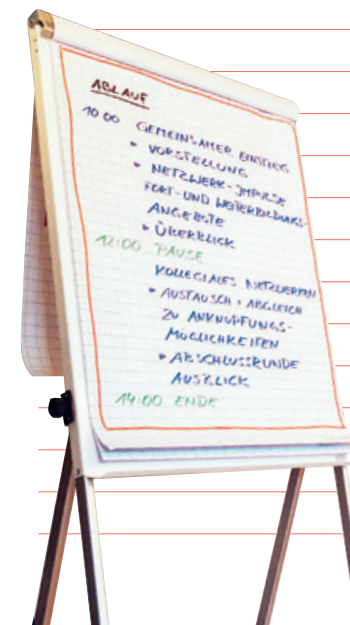 ABLAUF
10:00 GEMEINSAMER EINSTIEG
• VORSTELLUNG
• NETZWERK-IMPULSE
FORT- UND WEITERBILDUNGS-
ANGEBOTE
• ÜBERBLICK
12:00 PAUSE
KOLLEGIALES NETZWERKEN
• AUSTAUSCH + ABGLEICH
ZU ANKNÜPFUNGS-
MÖGLICHKEITEN
• ABSCHLUSSRUNDE
AUSBLICK
14:00 ENDE